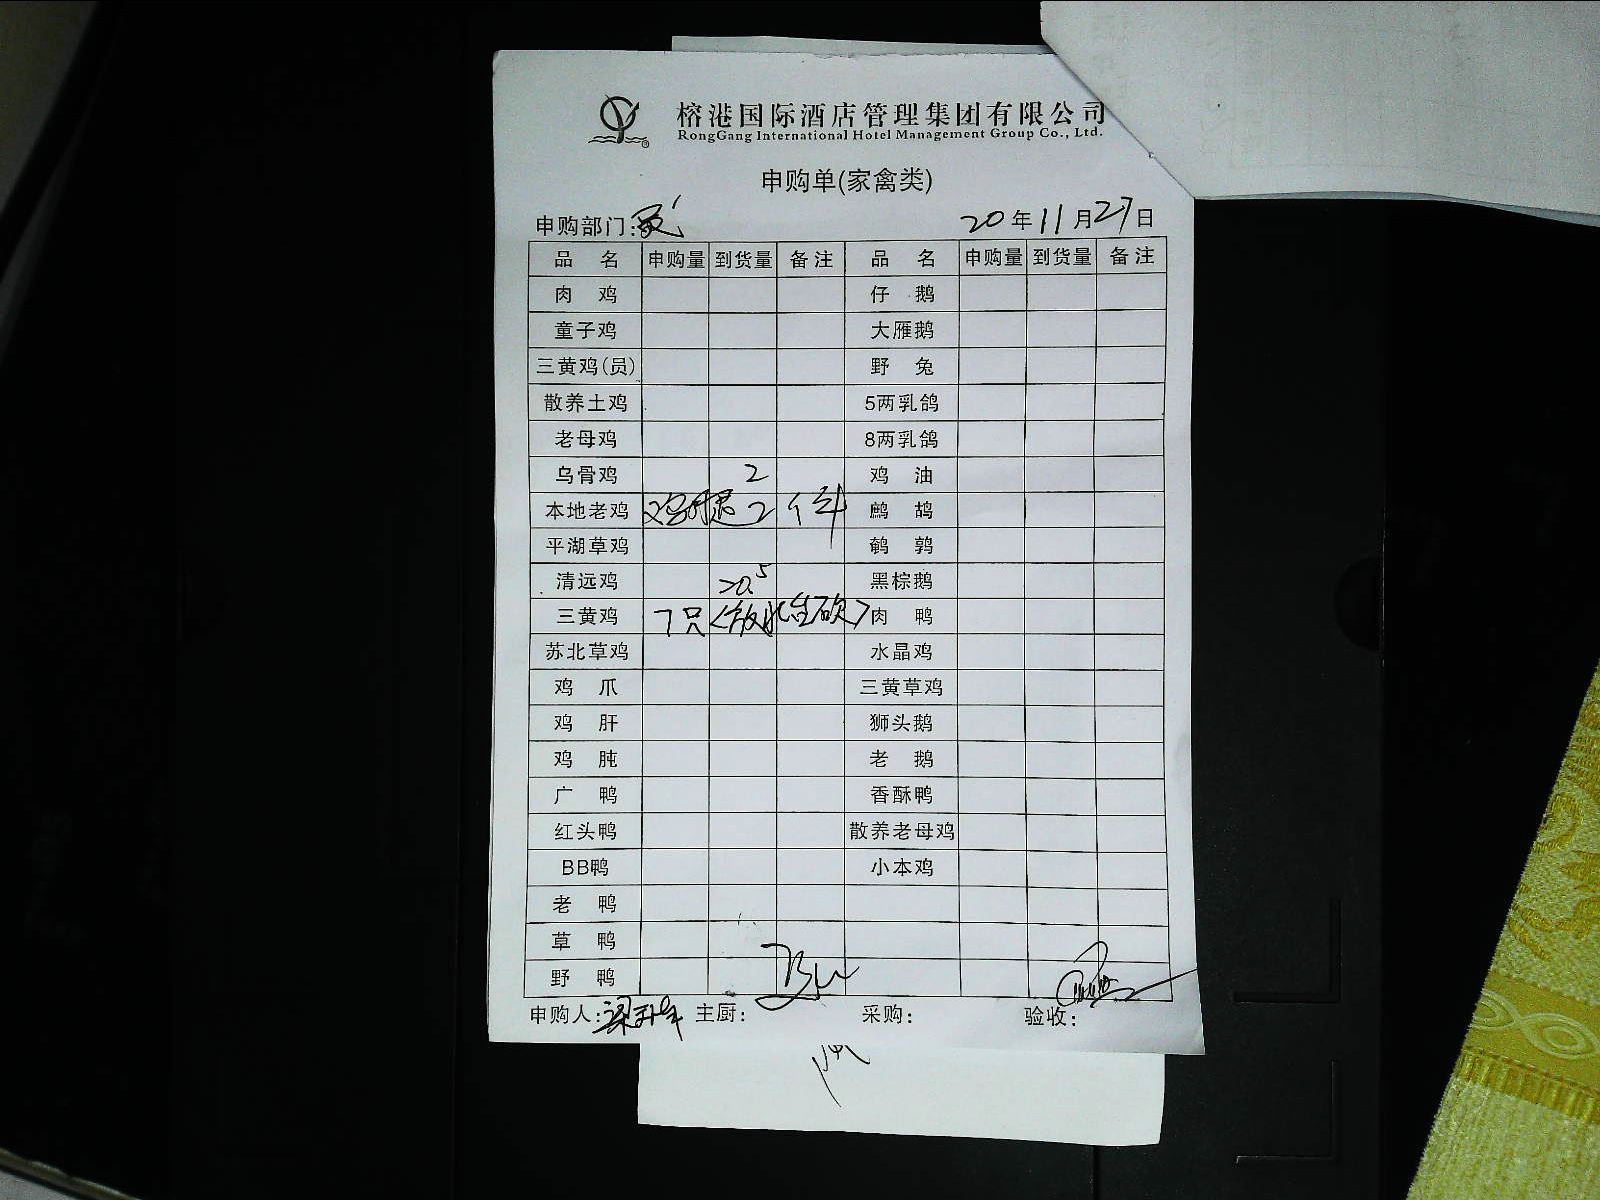 榕港国际酒店管理集团有限公司
RongGang International Hotel Management Group Co., Ltd.
申购单(家禽类)
申购部门: 20年11月27日
品 名 申购量 到货量 备注 品 名 申购量 到货量 备注
肉 鸡 仔 鹅
童子鸡 大雁鹅
三黄鸡(员) 野 兔
散养土鸡 5两乳鸽
老母鸡 8两乳鸽
乌骨鸡 2 鸡 油
本地老鸡 鸡腿2件 鹧 鸪
平湖草鸡 鹌 鹑
清远鸡 20.5 黑棕鹅
三黄鸡 7只<放水台砍> 肉 鸭
苏北草鸡 水晶鸡
鸡 爪 三黄草鸡
鸡 肝 狮头鹅
鸡 肫 老 鹅
广 鸭 香酥鸭
红头鸭 散养老母鸡
BB鸭 小本鸡
老 鸭
草 鸭
野 鸭
申购人: 主厨: 采购: 验收: